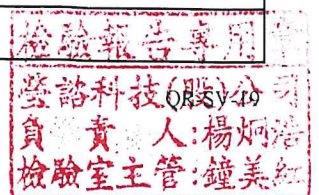 檢驗報告專用章
瑩諮科技(股)公司
QR-SY-19
負責人:楊炯浩
檢驗室主管:鐘美紅